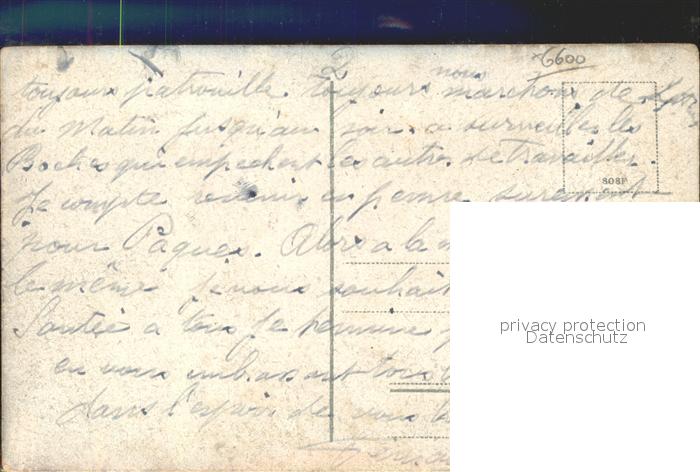 2 6600
toujours patrouille. toujours nous marchons de
du Matin jusqu'au soir a surveiller les
Boches qui empechent les autres de travailler.
Je compte revenir en perme surement
pour Paques. Alors a la
le même je vous souhait
Santée a tous Je termine
en vous embrassant tous
dans l'espoir de vous
808P
privacy protection
Datenschutz